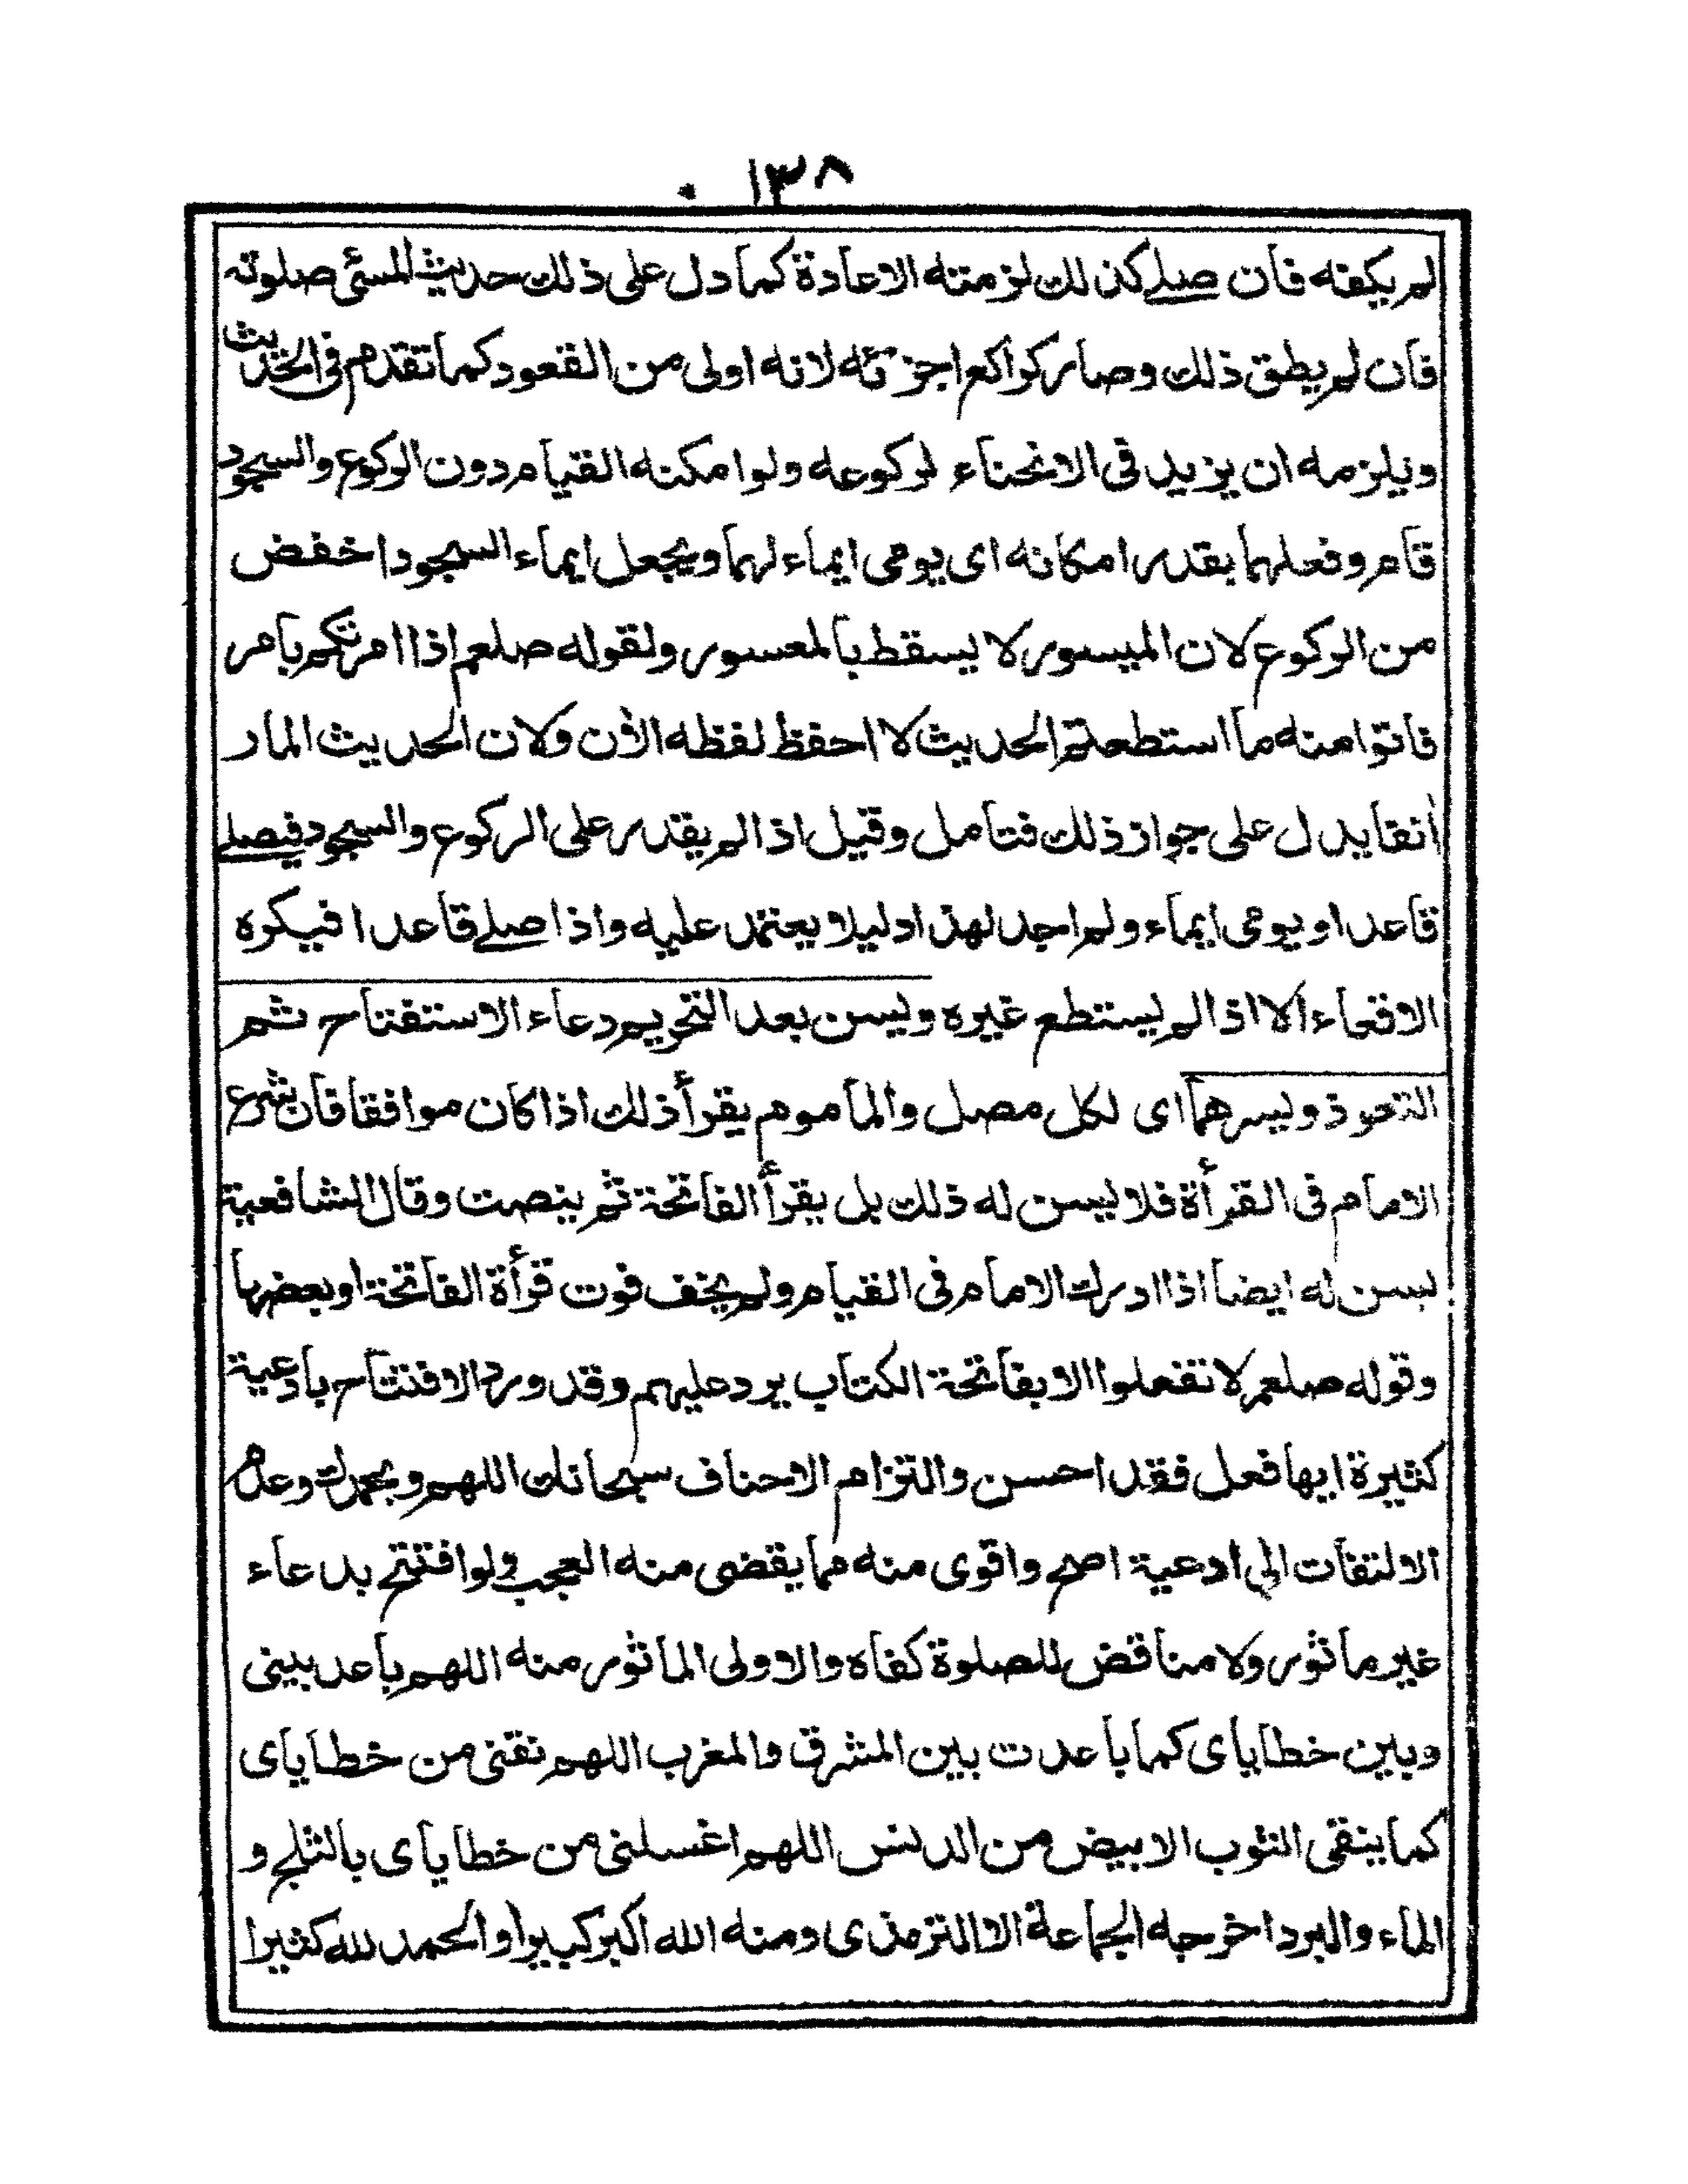 ١٣٨
لم يكفه فان صلے كذلك لزمته الاعادة كما دل على ذلك حديث المسئى صلوته
فان لم يطق ذلك وصار كراكع اجزئه لانه اولى من القعود كما تقدم فى الحديث
ويلزمه ان يزيد فى الانحناء لركوعه ولوا مكنه القيام دون الركوع والسجود
قام وفعلهما بقدر امكانه اى يومى ايماء لهما ويجعل ايماء السجود اخفض
من الركوع لان الميسور لا يسقط بالمعسور ولقوله صلعم اذا امرتكم بامر
فاتوا منه ما استطعتم الحديث لا احفظ لفظه الأن ولان الحديث المار
أنفا يدل على جواز ذلك فتامل وقيل اذا لم يقدر على الركوع والسجود فيصلے
قاعدا و يومى ايماء ولم اجد لهذا دليلا يعتمد عليه واذا صلے قاعدا فيكره
الاقعاء الا اذا لم يستطع غيره ويسن بعد التحريم دعاء الاستفتاح ثم
التعوذ ويسرهما اى لكل مصل والمأموم يقرأ ذلك اذا كان موافقا فان شرع
الامام فى القرأة فلا يسن له ذلك بل يقرأ الفاتحة ثم ينصت وقال الشافعية
يسن له ايضا اذا ادرك الامام فى القيام ولم يخف فوت قرأة الفاتحة او بعضها
وقوله صلعم لا تفعلوا الا بفاتحة الكتاب يرد عليهم وقد ورد الافتتاح بادعية
كثيرة ايها فعل فقد احسن والتزام الاحناف سبحانك اللهم وبحمدك وعدم
الالتفات الي ادعية اصح واقوى منه مما يقضى منه العجب ولوا فتتح بدعاء
غير ماثور ولا مناقض للصلوة كفاه والاولى الماثور منه اللهم باعد بينى
وبين خطاياى كما باعدت بين المشرق والمغرب اللهم نقنى من خطاياى
كما ينقى الثوب الابيض من الدنس اللهم اغسلنى من خطاياى بالثلج و
الماء والبرد اخرجه الجماعة الا الترمذى ومنه الله اكبر كبيرا والحمد لله كثيرا